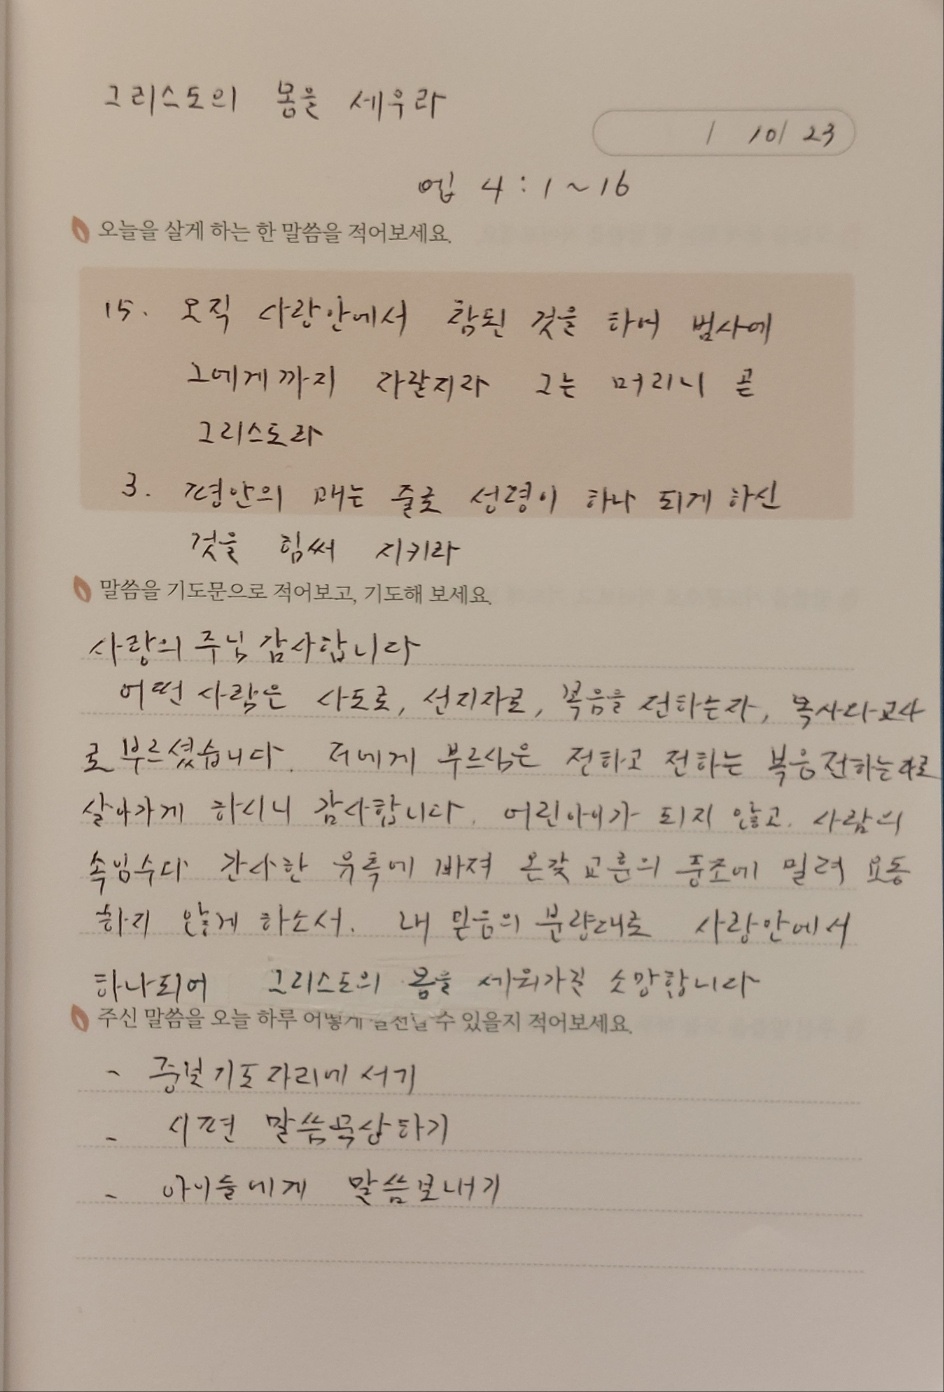 그리스도의 몸을 세우라
/ 10/ 23
엡 4:1~16
오늘을 살게 하는 한 말씀을 적어보세요.
15. 오직 사랑안에서 참된 것을 하여 범사에
그에게까지 자랄지라 그는 머리니 곧
그리스도라
3. 평안의 매는 줄로 성령이 하나 되게 하신
것을 힘써 지키라
말씀을 기도문으로 적어보고, 기도해 보세요.
사랑의 주님 감사합니다
어떤 사람은 사도로, 선지자로, 복음을 전하는자, 목사와교사
로 부르셨습니다. 저에게 부르심은 전하고 전하는 복음전하는자로
살아가게 하시니 감사합니다. 어린아이가 되지 않고. 사람의
속임수와 간사한 유혹에 빠져 온갖 교훈의 풍조에 밀려 요동
하지 않게 하소서. 내 믿음의 분량대로 사랑안에서
하나되어 그리스도의 몸을 세워가길 소망합니다
주신 말씀을 오늘 하루 어떻게 실천할 수 있을지 적어보세요.
- 중보기도자리에 서기
- 시편 말씀묵상하기
- 아이들에게 말씀보내기